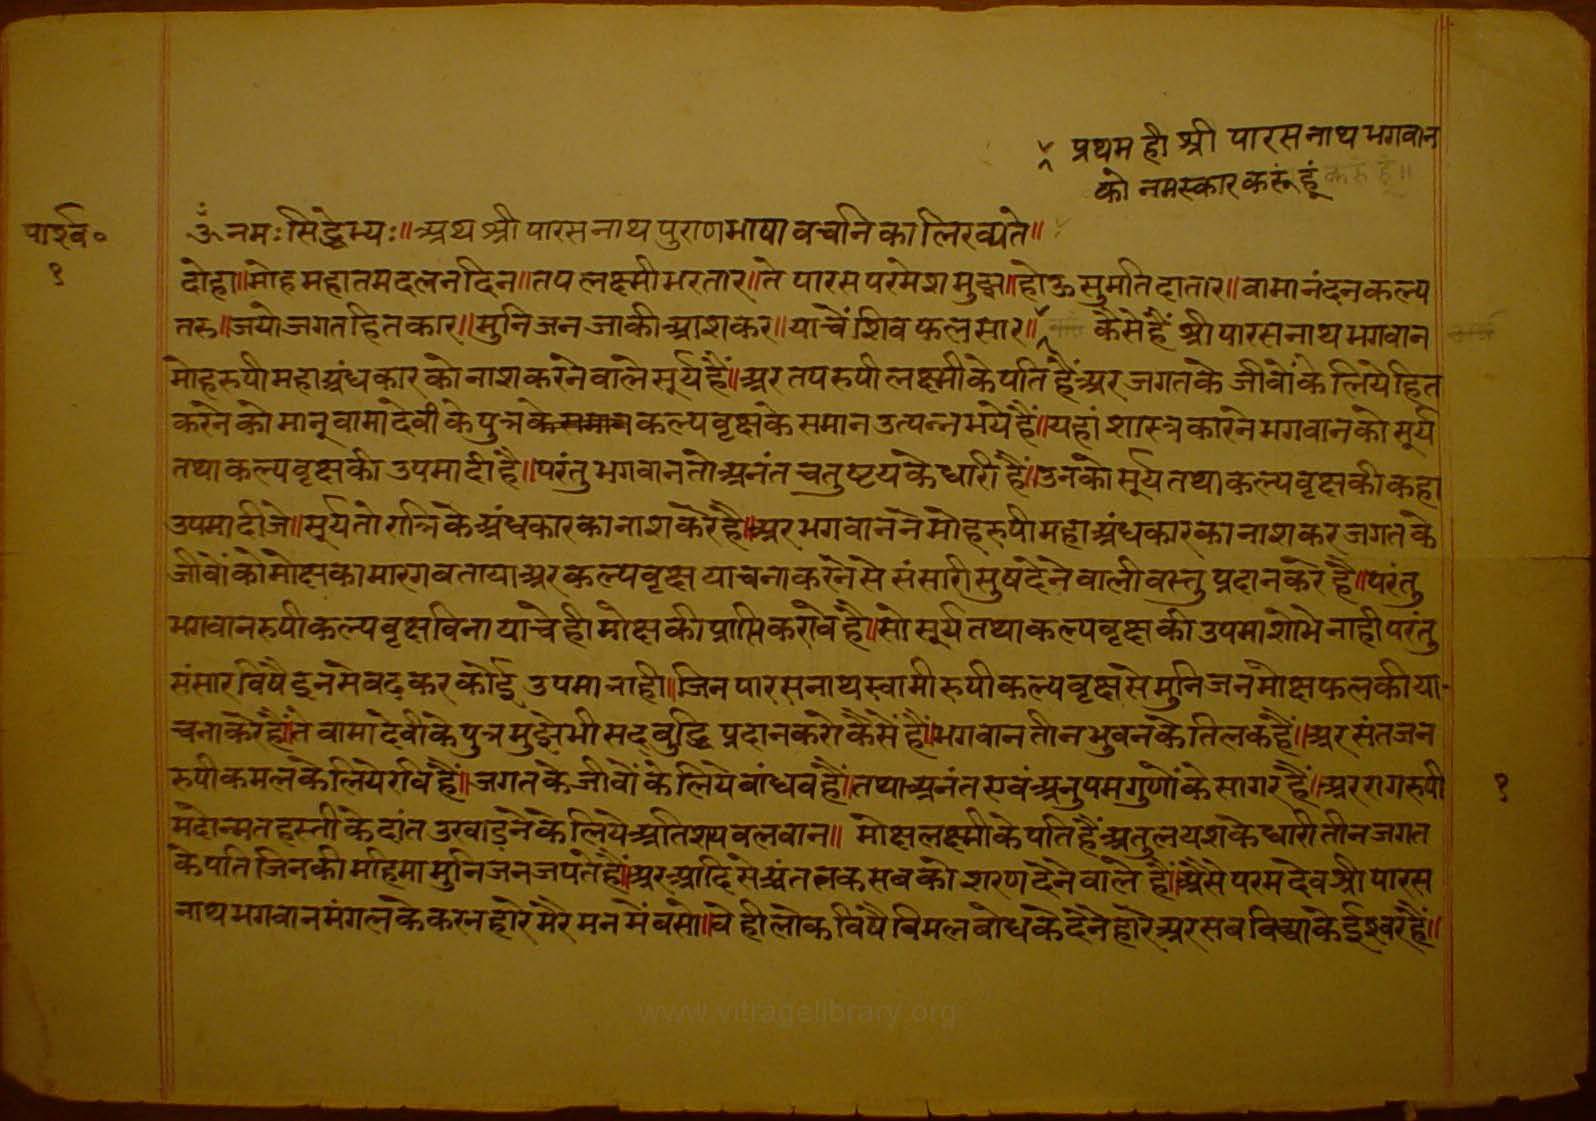 प्रथम ही श्री पारसनाथ भगवान
को नमस्कार करूं हूं
पार्श्व॰
१
ॐ नमः सिद्धेभ्यः॥ अथ श्री पारसनाथ पुराण भाषा वचनिका लिख्यते॥
दोहा॥ मोह महातम दलन दिन॥ तप लक्ष्मी भरतार॥ ते पारस परमेश मुझ॥ होऊ सुमति दातार॥ वामानंदन कल्प
तरु॥ जयो जगत हितकार॥ मुनिजन जाकी आशकर॥ याचें शिव फल सार॥ कैसे हैं श्री पारसनाथ भगवान
मोहरुपी महा अंधकार को नाश करने वाले सूर्य हैं॥ अर तपरुपी लक्ष्मी के पति हैं अर जगत के जीवों के लिये हित
करने को मानू वामादेवी के पुत्र के समान कल्पवृक्ष के समान उत्पन्न भये हैं॥ यहां शास्त्रकार ने भगवान को सूर्य
तथा कल्पवृक्ष की उपमा दी है॥ परंतु भगवान तो अनंत चतुष्टय के धारी हैं॥ उनको सूर्य तथा कल्पवृक्ष की कहा
उपमा दीजे॥ सूर्य तो रात्रि के अंधकार का नाश करे है॥ अर भगवान ने मोहरुपी महा अंधकार का नाश कर जगत के
जीवों को मोक्ष का मारग बताया अर कल्पवृक्ष याचना करने से संसारी सुष देने वाली वस्तु प्रदान करे है॥ परंतु
भगवानरुपी कल्पवृक्ष विना याचे ही मोक्ष की प्राप्ति करावे है॥ सो सूर्य तथा कल्पवृक्ष की उपमा शोभे नाही परंतु
संसार विषै इनसे बढ़कर कोई उपमा नाही॥ जिन पारसनाथ स्वामी रुपी कल्पवृक्ष से मुनिजन मोक्षफल की या-
चना करे हैं॥ ते वामादेवी के पुत्र मुझे भी सद्बुद्धि प्रदान करो कैसे हैं॥ भगवान तीन भुवन के तिलक हैं॥ अर संतजन
रुपी कमल के लिये रवि हैं॥ जगत के जीवों के लिये बांधव हैं॥ तथा अनंत एवं अनुपम गुणों के सागर हैं॥ अर रागरुपी
१
मदोन्मत हस्ती के दांत उखाड़ने के लिये अतिशय बलवान॥ मोक्षलक्ष्मी के पति हैं अतुल यश के धारी तीन जगत
के पति जिनकी महिमा मुनिजन जपते हैं॥ अर आदि से अंत तक सब को शरण देने वाले हैं॥ अैसे परम देव श्री पारस
नाथ भगवान मंगल के करनहारे मेरे मन में बसो॥ वे ही लोक विषै विमल बोध के देने हारे अर सब विद्या के ईश्वर हैं॥
www.vitragelibrary.org